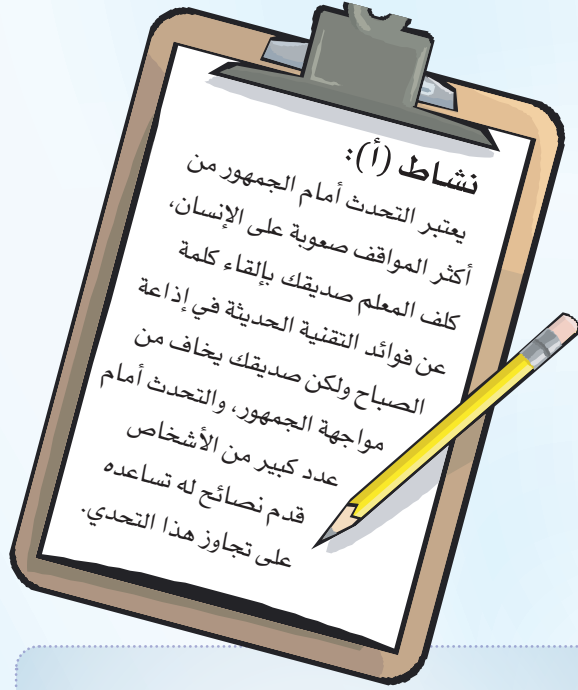 نشاط (أ):
يعتبر التحدث أمام الجمهور من
أكثر المواقف صعوبة على الإنسان،
كلف المعلم صديقك بإلقاء كلمة
عن فوائد التقنية الحديثة في إذاعة
الصباح ولكن صديقك يخاف من
مواجهة الجمهور، والتحدث أمام
عدد كبير من الأشخاص
قدم نصائح له تساعده
على تجاوز هذا التحدي.